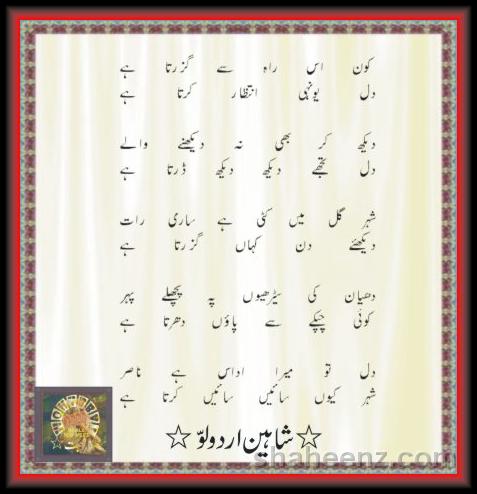 کون اس راہ سے گزرتا ہے
دل یونہی انتظار کرتا ہے
دیکھ کر بھی نہ دیکھنے والے
دل تجھے دیکھ دیکھ ڈرتا ہے
شہر گل میں کٹی ہے ساری رات
دیکھئے دن کہاں گزرتا ہے
دھیان کی سیڑھیوں پہ پچھلے پہر
کوئی چپکے سے پاؤں دھرتا ہے
دل تو میرا اداس ہے ناصر
شہر کیوں سائیں سائیں کرتا ہے
☆ شاہین اردو لوّ ☆
shaheenz.com